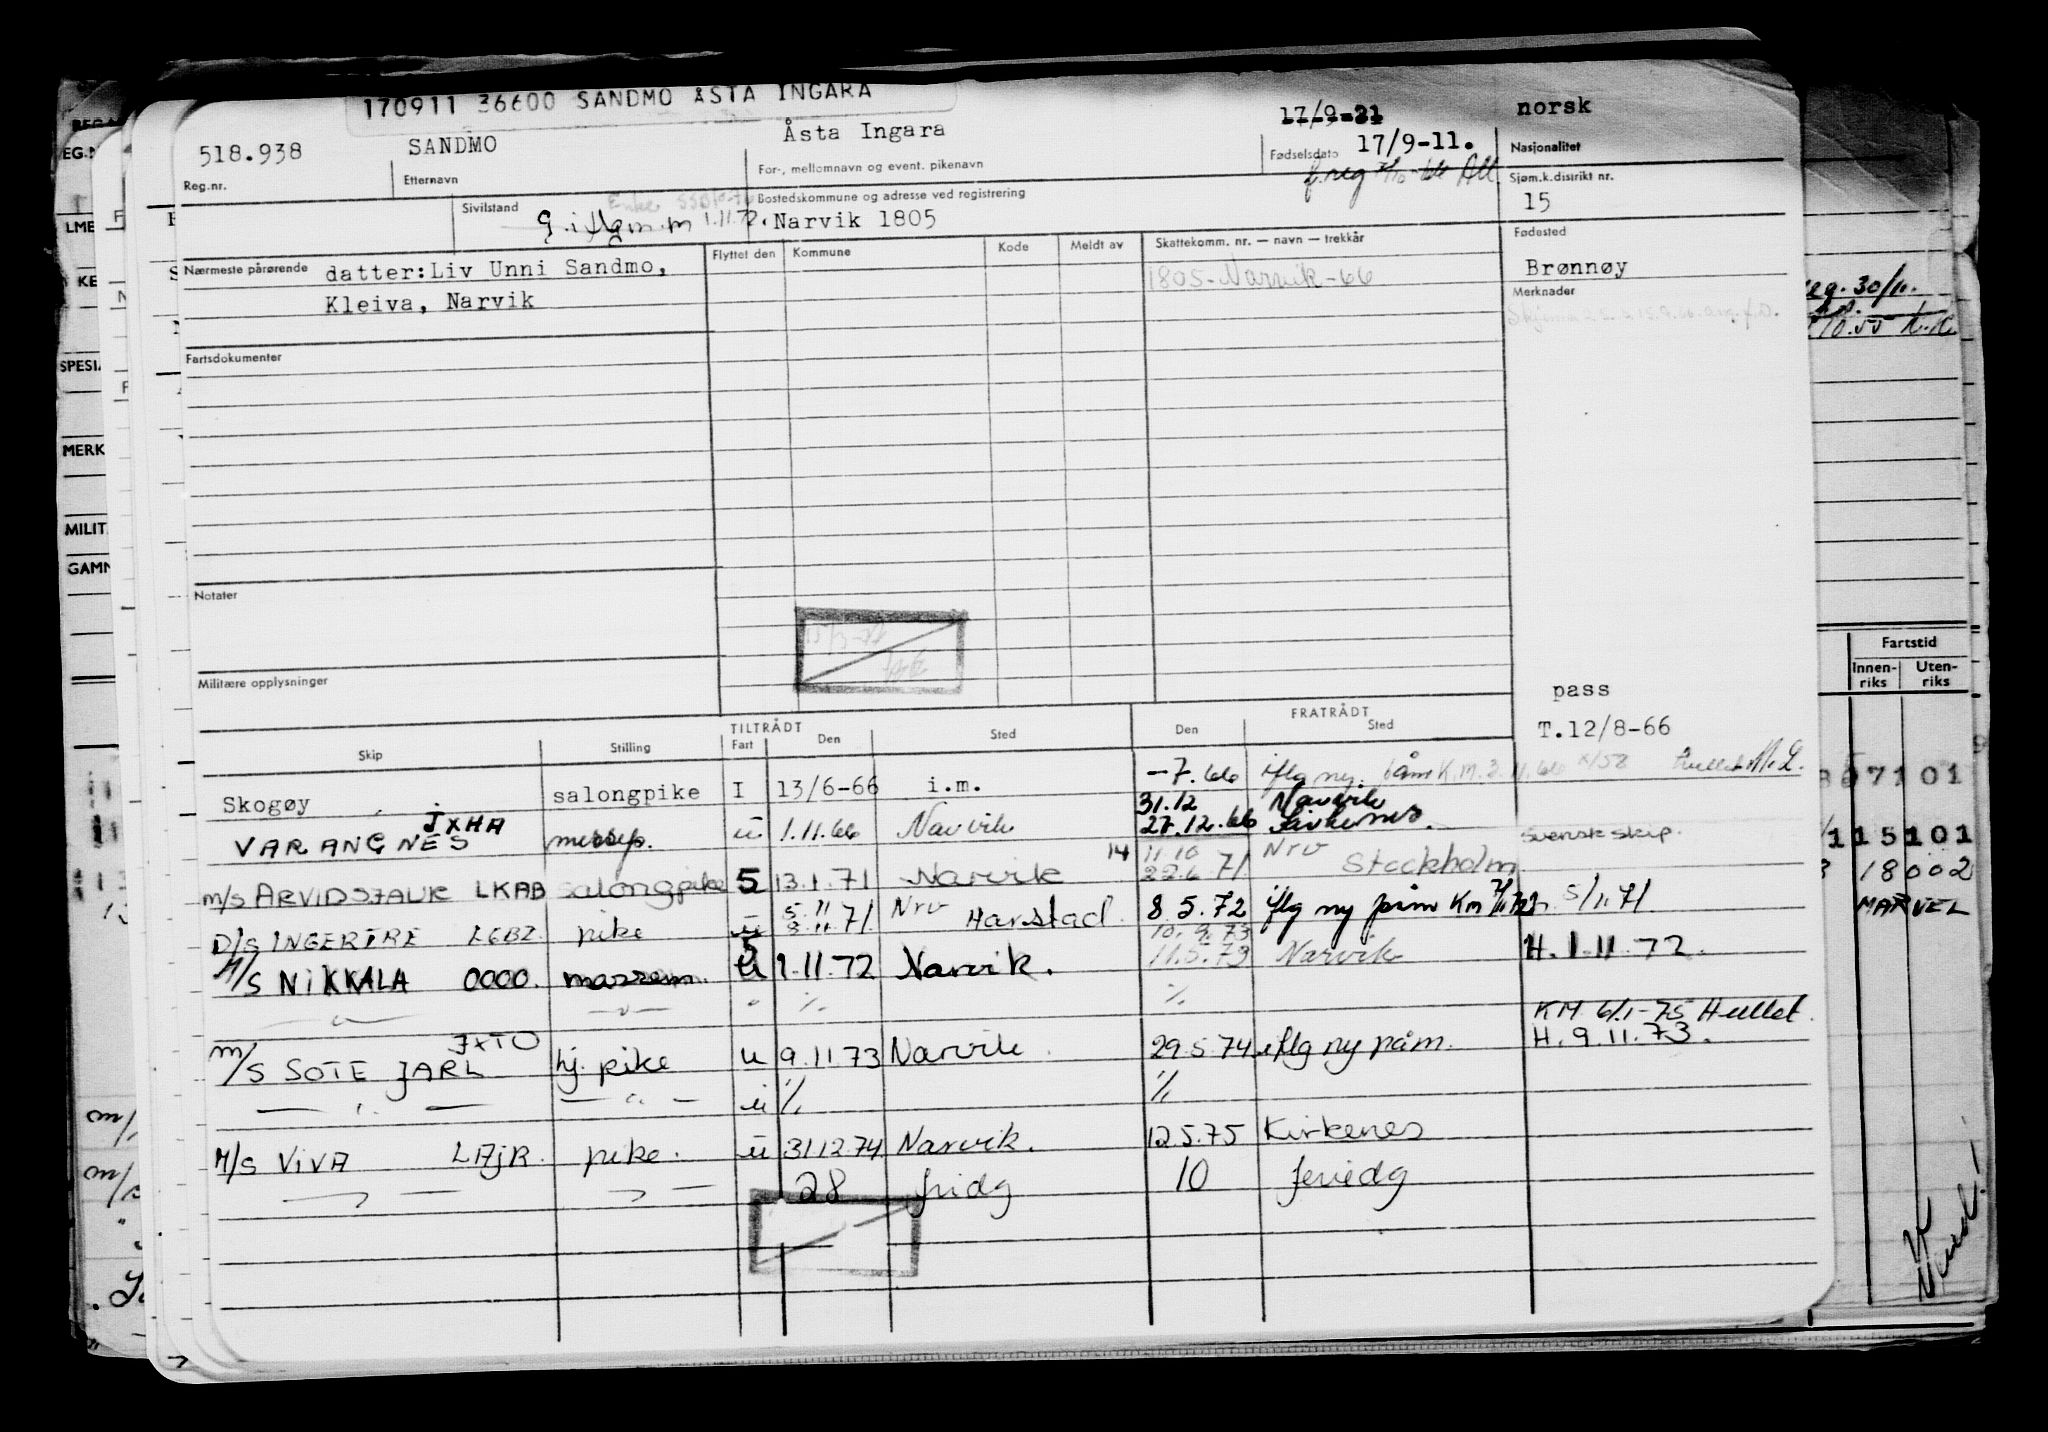 170911 36600 SANDMO ÅSTA INGARA
518.938 SANDMO Åsta Ingara 17/9-21 17/9-11. norsk
Reg.nr. Etternavn For-, mellomnavn og event. pikenavn Fødselsdato Nasjonalitet
Sivilstand Bostedskommune og adresse ved registrering Sjøm.k.distrikt nr.
g. 1.11.72. Narvik 1805 15
Nærmeste pårørende datter:Liv Unni Sandmo,
Kleiva, Narvik
Flyttet den Kommune Kode Meldt av Skattekomm. nr. — navn — trekkår Fødested
1805-Narvik-66 Brønnøy
Merknader
Fartsdokumenter
Notater
Militære opplysninger
pass
T.12/8-66
TILTRÅDT FRATRÅDT
Skip Stilling Fart Den Sted Den Sted
Skogøy salongpike I 13/6-66 i.m. -7.66 iflg ny. påm K.M. 3.11.66
31.12 Narvik
VARANGNES JXHA messep. u 1.11.66 Narvik 27.12.66 Kirkenes.
Svensk skip.
14 11.10 Nrv
m/s ARVIDSJAUR LKAB salongpike 5 13.1.71 Narvik 22.6.71 Stockholm
5.11 Nrv
D/S INGERTRE LGBZ pike u 3.11.71 Harstad. 8.5.72 iflg ny påm KM 5/1.71
10.9.73
M/S NIKKALA OOOO. massem. 5 u 1.11.72 Narvik. 11.5.73 Narvik H. 1.11.72.
KM 6/1-75 Hullet.
m/s SOTE JARL JXTO hj. pike u 9.11.73 Narvik. 29.5.74 iflg ny påm. H. 9.11.73.
M/S VIVA LAJR. pike. u 31.12.74 Narvik. 12.5.75 Kirkenes
28 fridg 10 feriedg
Fartstid
Innen-
riks
Uten-
riks
115101
18002
MARVEL
SPESIA
MERK
MILIT
GAMN